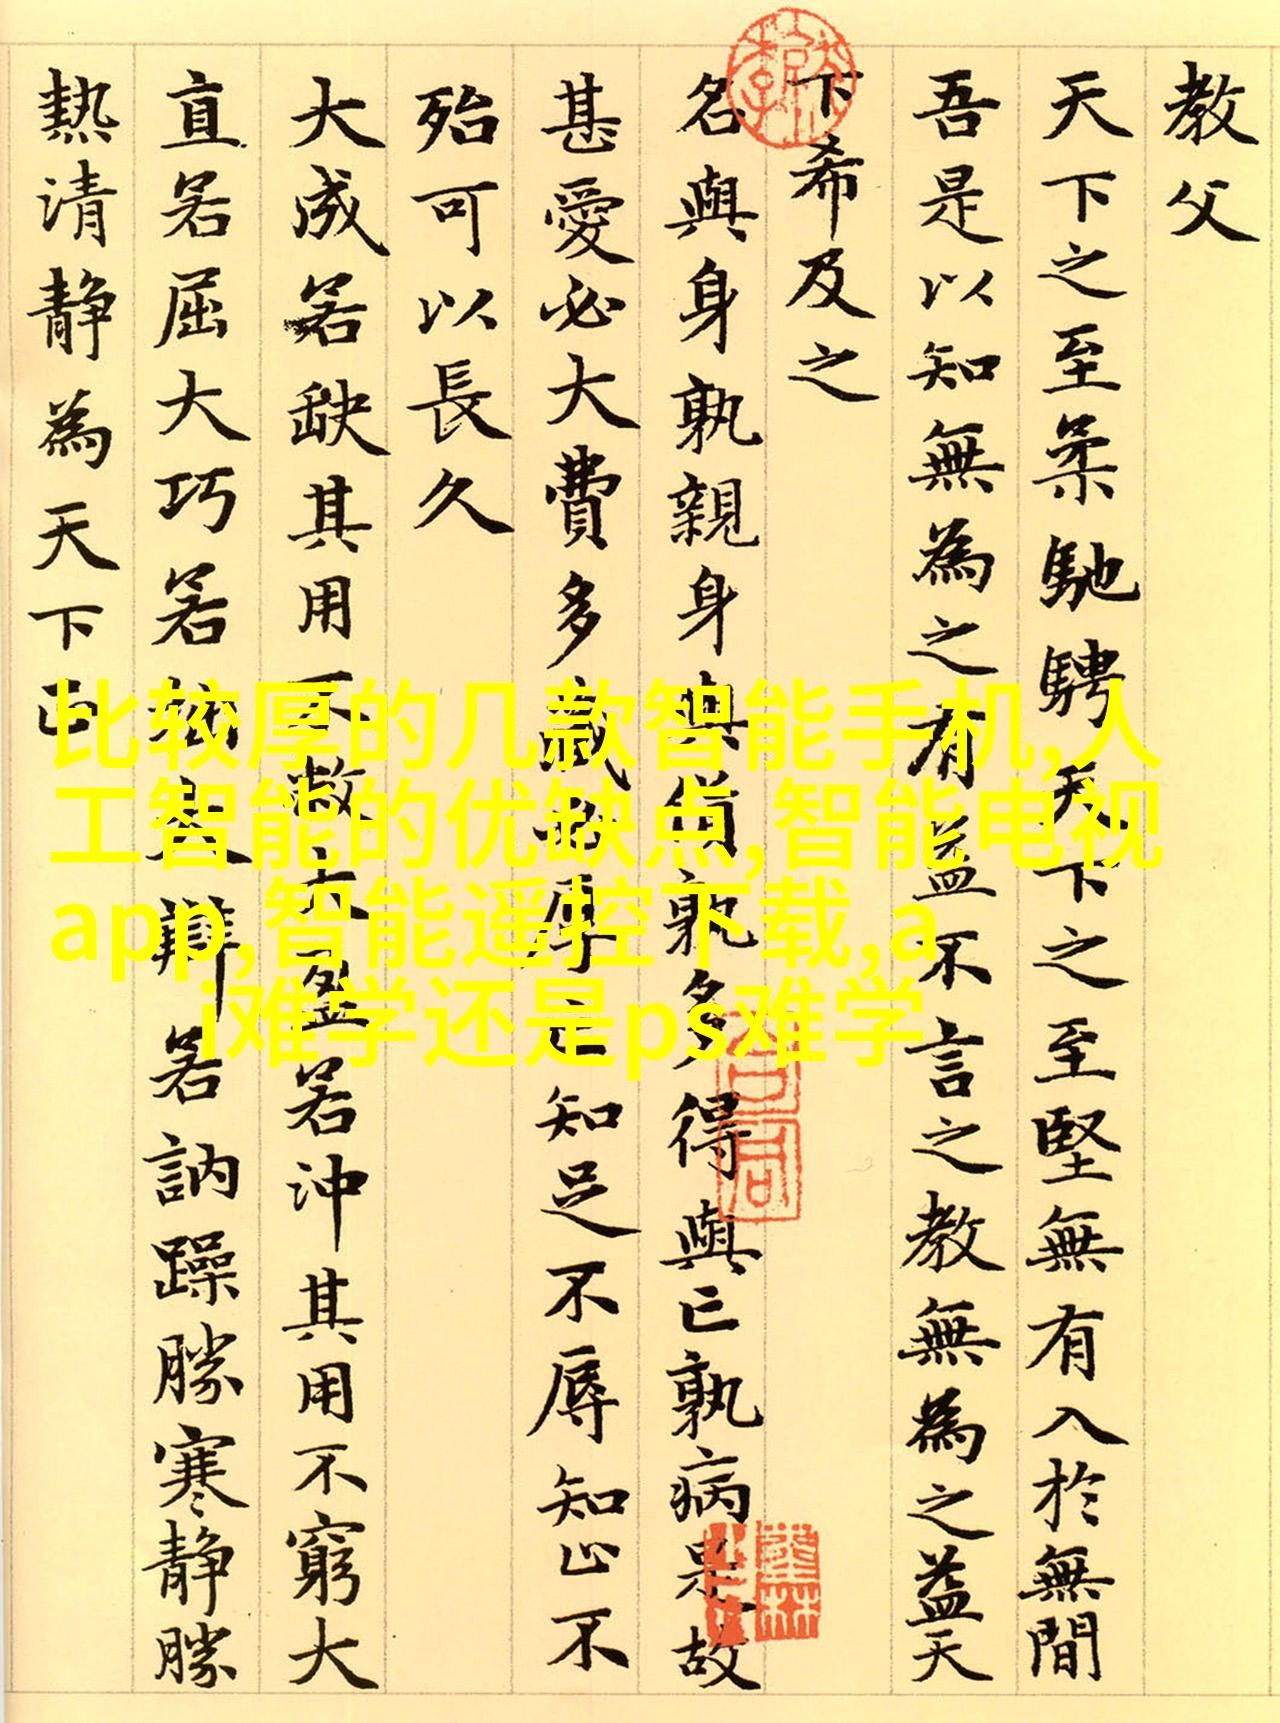 教父
天下之至柔馳騁天下之至堅無有入於無間
吾是以知無為之有益不言之教無為之益天
下希及之
名與身孰親身與貨孰多得與亡孰病是故
甚愛必大費多藏必厚亡知足不辱知止不
殆可以長久
大成若缺其用不敝大盈若沖其用不窮大
直若屈大巧若拙大辯若訥躁勝寒靜勝
熱清靜為天下正
比较厚的几款智能手机,人
工智能的优缺点,智能电视
app,智能遥控下载,a
i难学还是ps难学